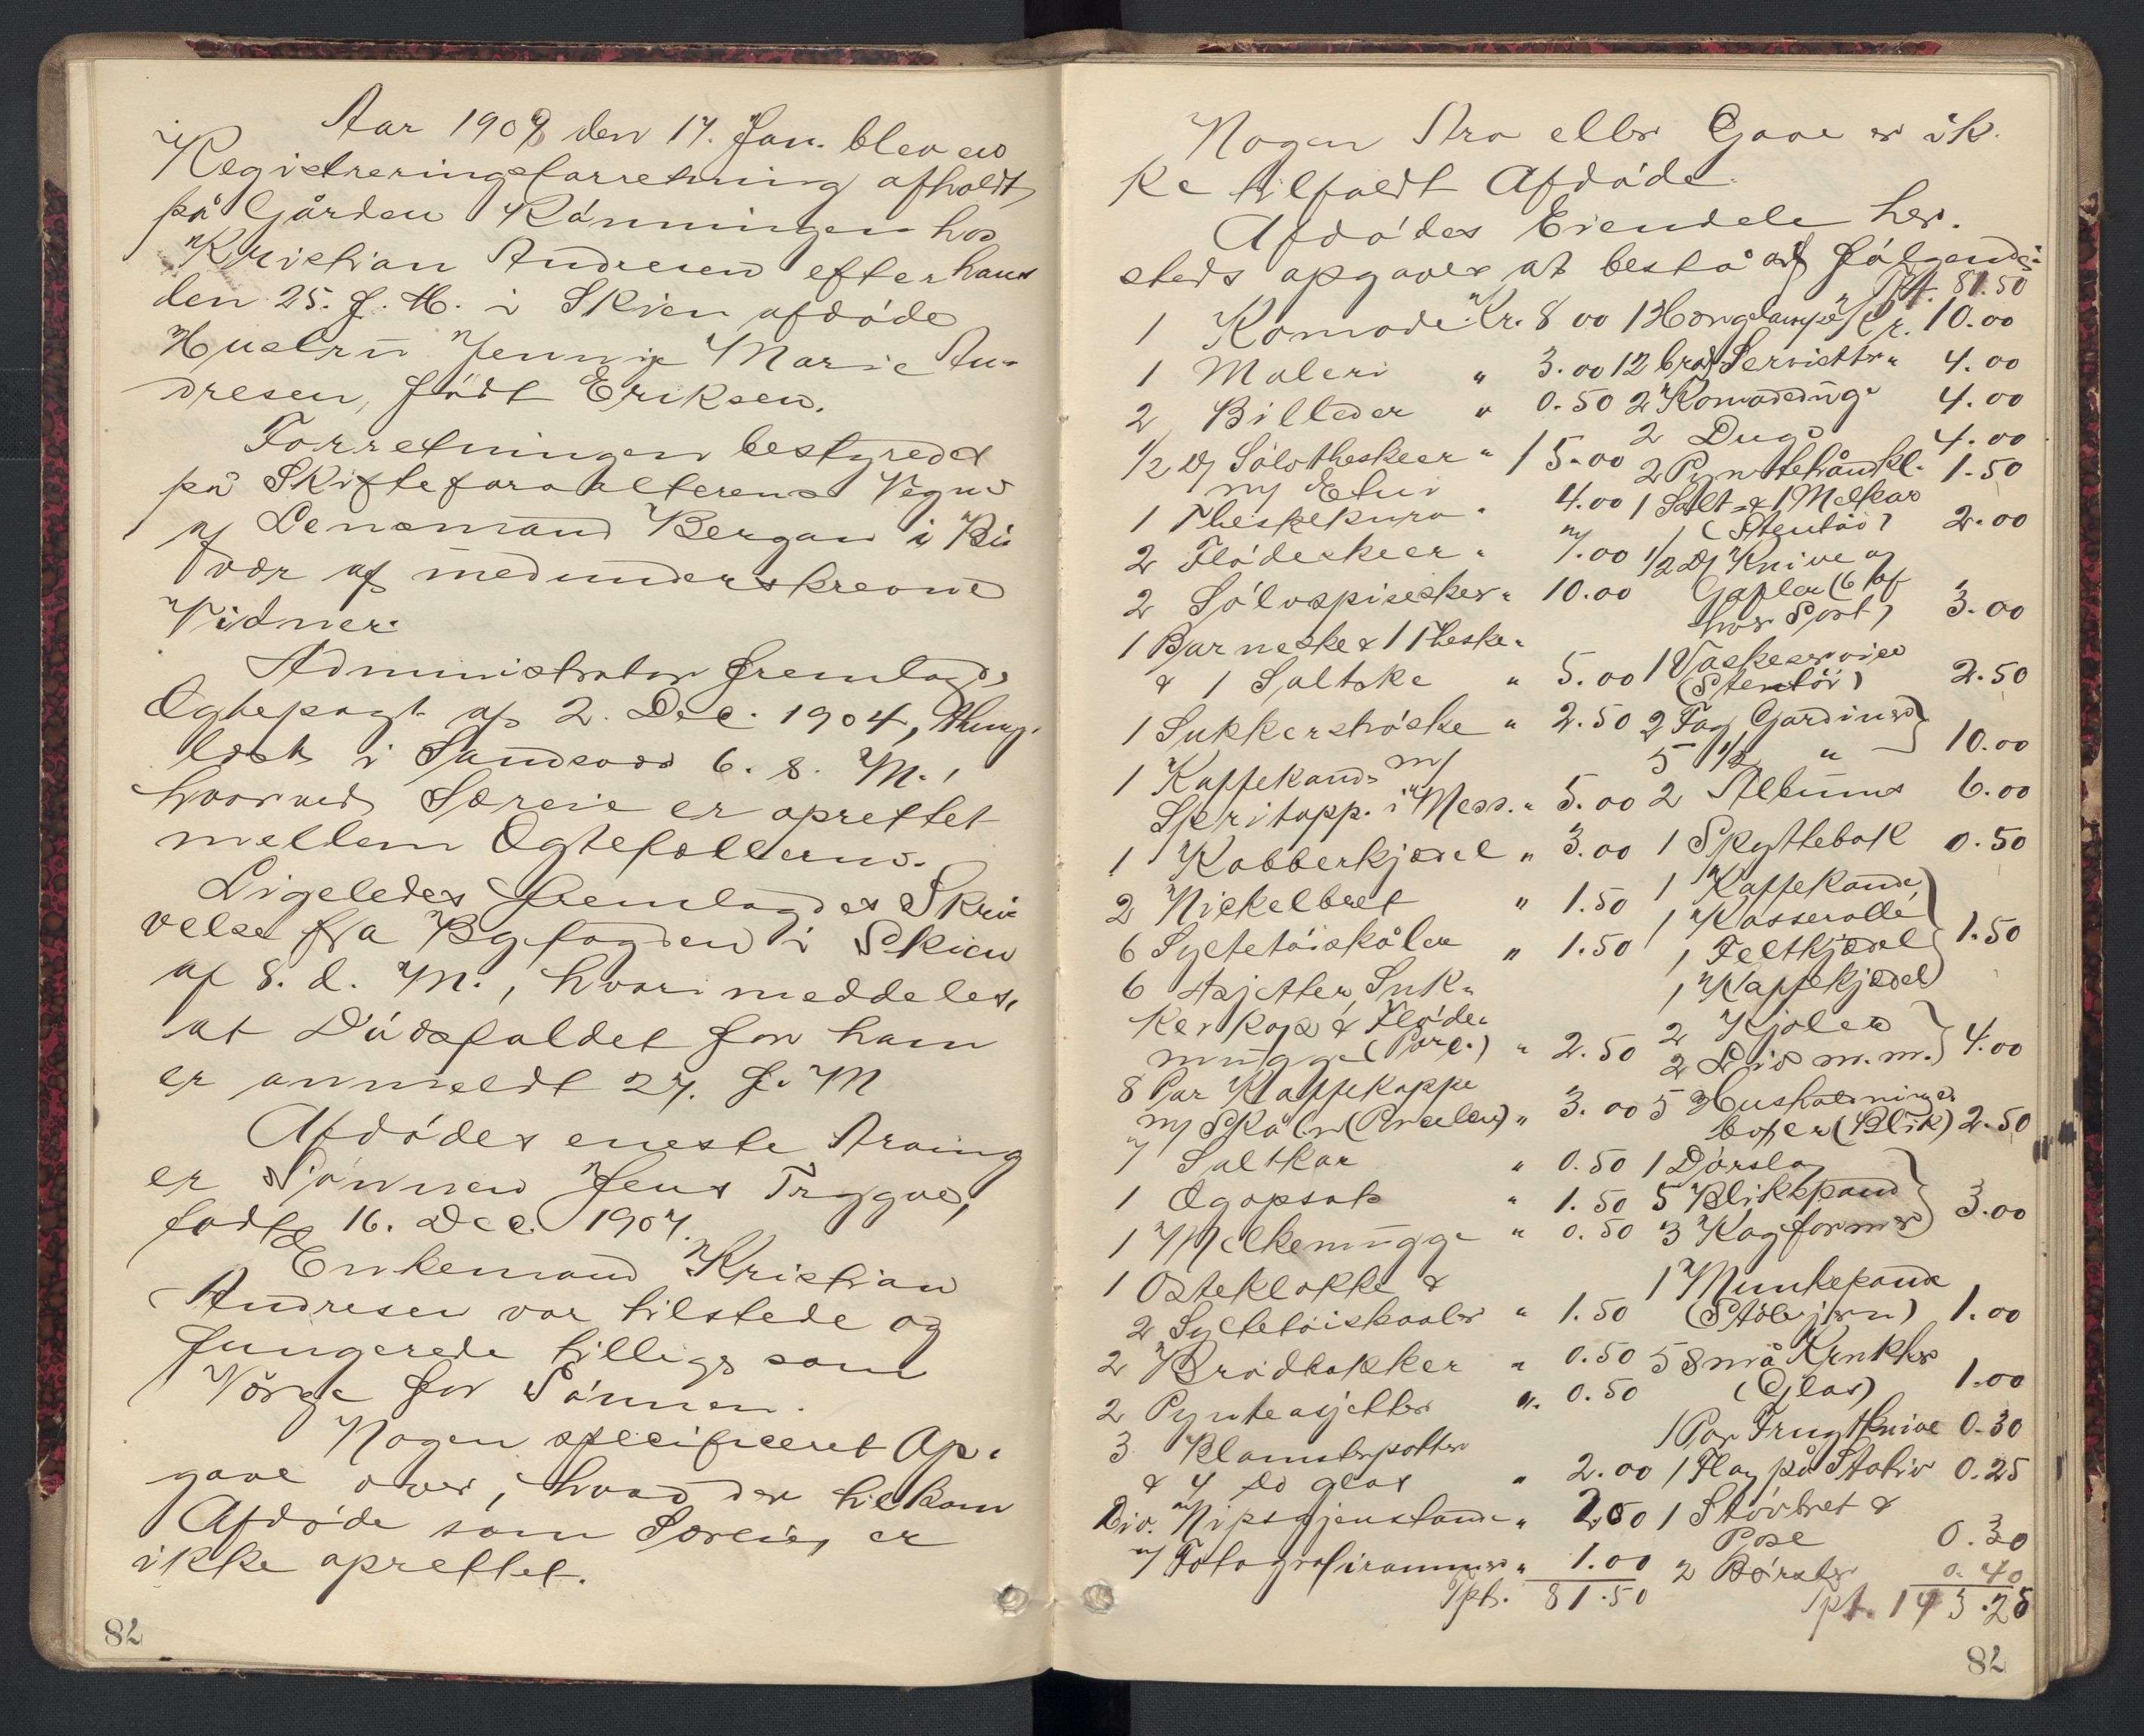 Aar 1908 den 17. Jan. blev en
Registreringsforretning afholdt
på Gården Rönningen hos
Kristian Andresen efter hans
den 25. f. M. i Skien afdöde
Hustru Jenny Marie An-
dresen, födt Eriksen.
Forretningen bestyredes
på Skifteforvalterens Vegne
af Lensmand Bergan i Bi-
vær af medunderskrevne
Vidner.
Administrator fremlagde
Ægtepagt af 2. Dec. 1904, thing-
læst i Sandsvær 6. s. M.,
hvorved Særeie er oprettet
mellem Ægtefællerne.
Ligeledes fremlagdes Skri-
velse fra Byfogden i Skien
af 8. d. M., hvori meddeles,
at Dödsfaldet for ham
er anmeldt 27. f. M
Afdödes eneste Arving
er Sönnen Jens Trygve,
födt 16. Dec. 1907.
Enkemand Kristian
Andresen var tilstede og
fungerede tillige som
Værge for Sönnen.
Nogen specificeret Op-
gave over, hvad der tilkom
Afdöde som Særeie, er
ikke oprettet.
82
Nogen Arv eller Gave er ik-
ke tilfaldt Afdöde.
Afdödes Eiendele her-
steds opgaves at bestå af fölgende:
Tpt. 81.50
1 Komode Kr. 8 00 1 Hængelampe Kr. 10.00
1 Maleri " 3.00 12 brod. Servietter " 4.00
2 Billeder " 0.50 2 Komodedug " 4.00
1/2 Ds Sölvtheskeer " 15.00 2 Duge 4.00
m/ Etui 2 Pyntehåndkl. 1.50
1 Theskekurv " 4.00 1 Salt- & 1 Melkar
(Stentöi) 2.00
2 Flödeskeer " 7.00 1/2 Ds Knive og
2 Sölvspiseskeer " 10.00 Gafler (6 af
hver Sort) 3.00
1 Barneske & 1 Theske "
& 1 Saltske " 5.00 1 Vaskeservice
(Stentöi) 2.50
1 Sukkerströske " 2.50 2 Fag Gardiner
5 1/2 " 10.00
1 Kaffekande m/
Spritapp. i Mess. " 5.00 2 Albums 6.00
1 Kobberkjedel " 3.00 1 Skyttebok 0.50
2 Nickelbret " 1.50 1 Kaffekande,
1 Kasserolle
6 Syltetöiskåler " 1.50 1 Feltkjedel 1.50
1 Kaffekjedel
6 Asjetter, Suk-
kerkop & Flöde-
mugge (Porc.) " 2.50 2 Kjoler
2 Liv m.m. 4.00
8 Par Kaffekoppe
m/ Skåler (Porcelen) " 3.00 5 Husholdnings
boxer (Blik) 2.50
7 Saltkar " 0.50 1 Dörslag
1 Ogopsats " 1.50 5 Blikspand
1 Melkemugge " 0.50 3 Kagformer 3.00
1 Osteklokke &
2 Syltetöiskaaler " 1.50 1 Munkepande
(Stöbejern) 1.00
2 Brödbakker " 0.50 5 Små Krukker
2 Pynteasjetter " 0.50 (Glas) 1.00
3 Blomsterpotter
& 4 do glas " 2.00 1 Par Frugtknive 0.30
1 Flag på Stativ 0.25
Div. Nipsgjenstande " 2.50 1 Stövbret &
Pose 0.30
7 Fotografirammer " 1.00 2 Börster 0.40
Tpt. 81.50 Tpt. 143.25
82